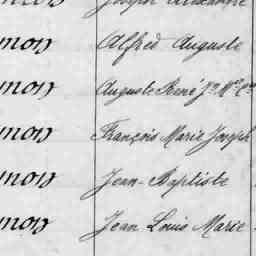 Joseph Alexandre
mon Alfred Auguste
mon Auguste René Jn Mie
mon François Marie Joseph
mon Jean-Baptiste
mon Jean Louis Marie